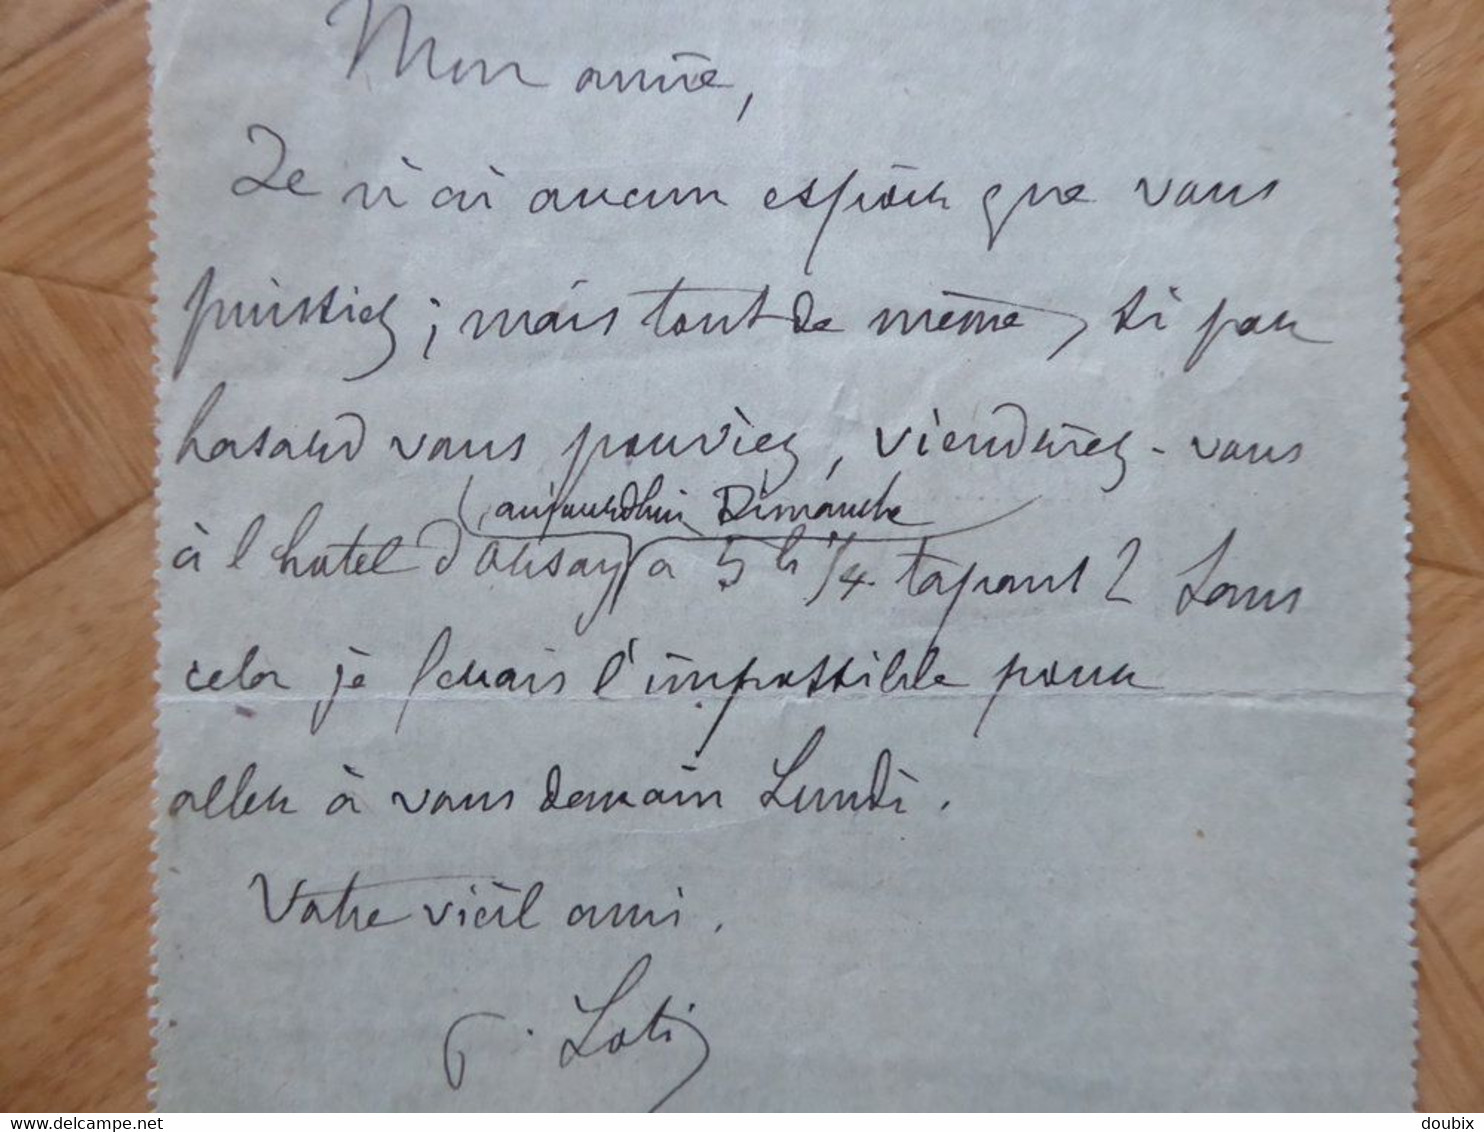 Mon amie,
Je n'ai aucun espoir que vous
puissiez ; mais tout de même, si par
hasard vous pouviez, viendriez-vous
(aujourdhui Dimanche
à l'hotel d'Orsay) a 5 h 1/4 tapant ? Sans
cela je ferais l'impossible pour
aller à vous demain Lundi.
Votre vieil ami.
P. Loti
delcampe.net
doubix